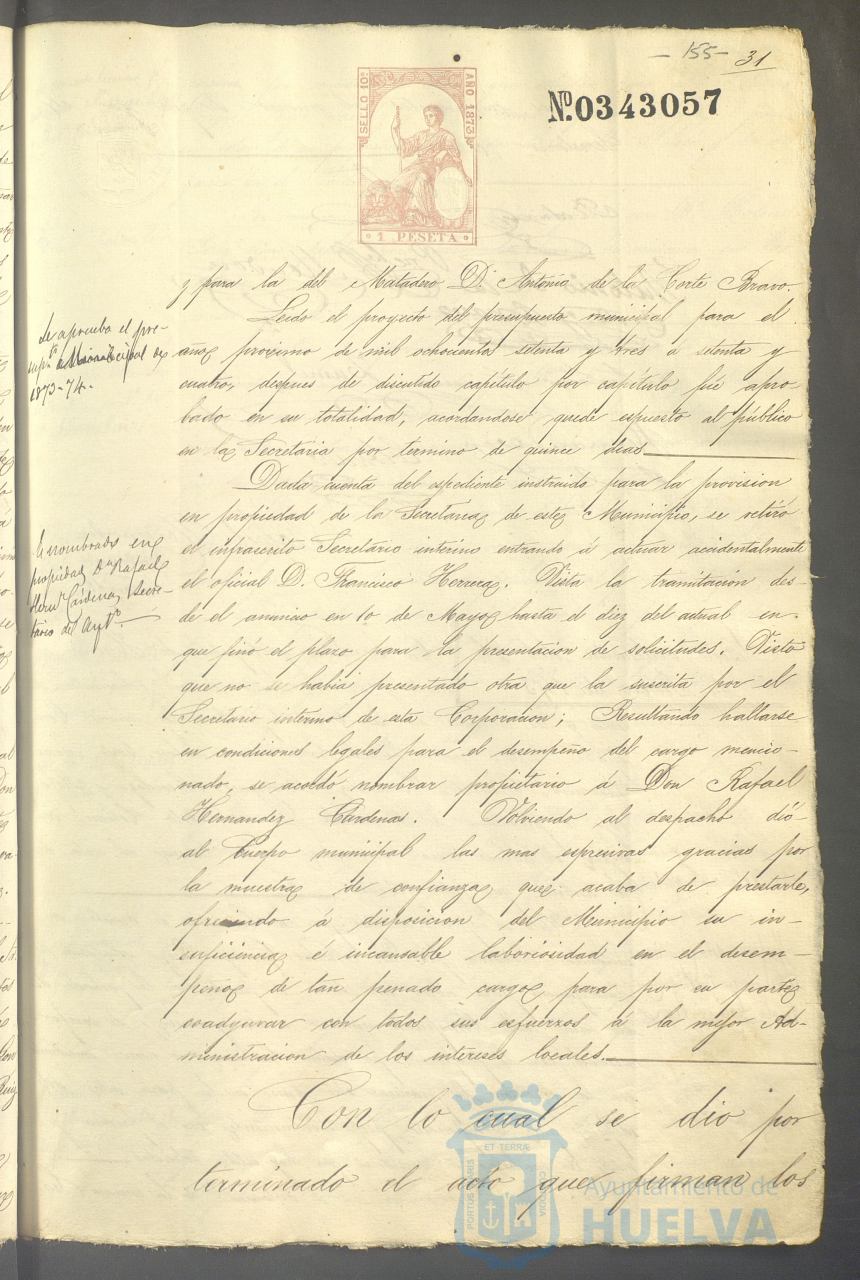 - 155 - 31
SELLO 10º
AÑO 1873
1 PESETA
Nº.0343057
y para la del Matadero D. Antonio de la Corte Bravo.
Leido el proyecto del presupuesto municipal para el
año proximo de mil ochocientos setenta y tres a setenta y
cuatro, despues de discutido capítulo por capítulo fué apro-
bado en su totalidad, acordandose quede espuesto al público
en la Secretaria por termino de quince dias
Dada cuenta del espediente instruido para la provision
en propiedad de la Secretaria de este Municipio, se retiró
el infrascrito Secretario interino entrando á actuar accidentalmente
el oficial D. Francisco Herrera. Vista la tramitacion des-
de el anuncio en 10 de Mayo hasta el diez del actual en
que finó el plazo para la presentacion de solicitudes. Visto
que no se habia presentado otra que la suscrita por el
Secretario interino de esta Corporacion; Resultando hallarse
en condiciones legales para el desempeño del cargo mencio-
nado, se acordó nombrar propietario á Don Rafael
Hernandez Cárdenas. Volviendo al despacho dió
al Cuerpo municipal las mas espresivas gracias por
la muestra de confianza que acaba de prestarle,
ofreciendo á disposicion del Municipio su in-
suficiencia é incansable laboriosidad en el desem-
peño de tan penado cargo para por su parte
coadyuvar con todos sus esfuerzos á la mejor Ad-
ministracion de los intereses locales.
Con lo cual se dio por
terminado el acto que firman los
Se aprueba el pre-
supto. Municipal de
1873-74.
Es nombrado en
propiedad Dn. Rafael
Hernz. Cárdenas Secre-
tario del Aytº.
PORTUS MARIS ET TERRÆ CUSTODIA
Ayuntamiento de
HUELVA